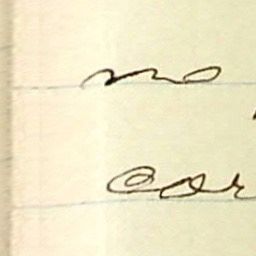 no
cor